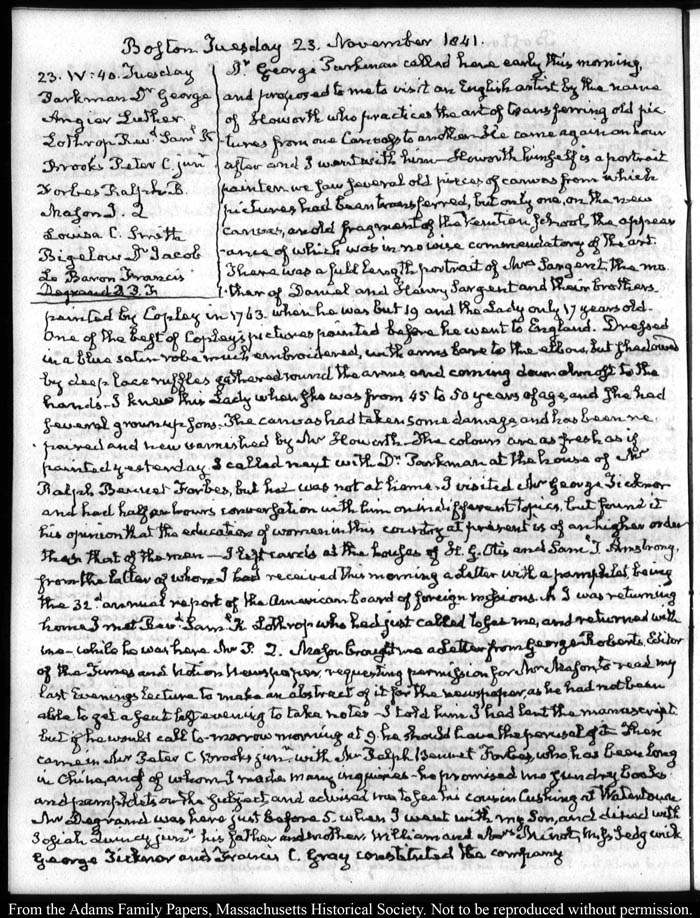 Boston Tuesday 23. November 1841.
23. IV: 40. Tuesday
Parkman Dr. George
Angier Luther
Lothrop Revd. Saml. K
Brooks Peter C. junr.
Forbes Ralph B.
Mason J. Q
Louisa C. Smith
Bigelow Dr. Jacob
Le Baron Francis
Degrand P. P. F.
Dr. George Parkman called here early this morning,
and proposed to me to visit an English artist by the name
of Howorth who practices the art of transferring old pic-
tures from one Canvass to another. He came again an hour
after and I went with him—Howorth himself is a portrait
painter. we saw several old pieces of canvas from which
pictures had been transferred, but only one, on the new
canvas, an old fragment of the Venetian School, the appear-
ance of which was in no wise commendatory of the art.
There was a full length portrait of Mrs. Sargent, the mo-
ther of Daniel and Henry Sargent and their brothers
painted by Copley in 1763. when he was but 19 and the Lady only 17 years old.
One of the best of Copley's pictures painted before he went to England. Dressed
in a blue satin robe much embroidered, with arms bare to the elbow, but shadowed
by deep lace ruffles gathered round the arms and coming down almost to the
hands. I knew this Lady when she was from 45 to 50 years of age, and she had
several grown up sons. The canvas had taken some damage, and has been re-
paired and new varnished by Mr. Howorth. The colours are as fresh as if
painted yesterday. I called next with Dr. Parkman at the house of Mr.
Ralph Bennet Forbes, but he was not at home. I visited Mr. George Ticknor
and had half an hours conversation with him on indifferent topics, but found it
his opinion that the education of women in this country at present is of an higher order
than that of the men—I left cards at the houses of H. G. Otis and Saml. T Armstrong,
from the latter of whom I had received this morning a Letter with a pamphlet, being
the 32d. annual report of the American board of foreign missions. As I was returning
home I met Revd. Saml. K. Lothrop who had just called to see me, and returned with
me—while he was here Mr. J. Q. Mason brought me a Letter from George Roberts, Editor
of the Times and Notion Newspaper, requesting permission for Mr. Mason to read my
last Evenings Lecture to make an abstract of it for the newspaper, as he had not been
able to get a seat last evening to take notes—I told him I had lent the manuscript.
but if he would call to-morrow morning at 9. he should have the perusal of it. Then
came in Mr. Peter C. Brooks junr. with Mr. Ralph Bennet Forbes, who has been long
in China, and of whom I made many inquiries—he promised me sundry books
and pamphlets on the subject and advised me to see his cousin Cushing at Watertown
Mr. Degrand was here just before 5. when I went with my Son, and dined with
Josiah Quincy junr. his father and mother, William and Mrs. Minot, Miss Sedgwick
George Ticknor and Francis C. Gray constituted the company
From the Adams Family Papers, Massachusetts Historical Society. Not to be reproduced without permission.